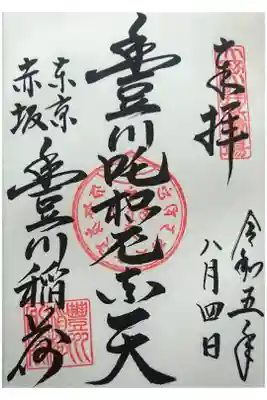 奉拝
令和五年
八月四日
豊川吒枳尼真天
東京
赤坂
豊川稲荷